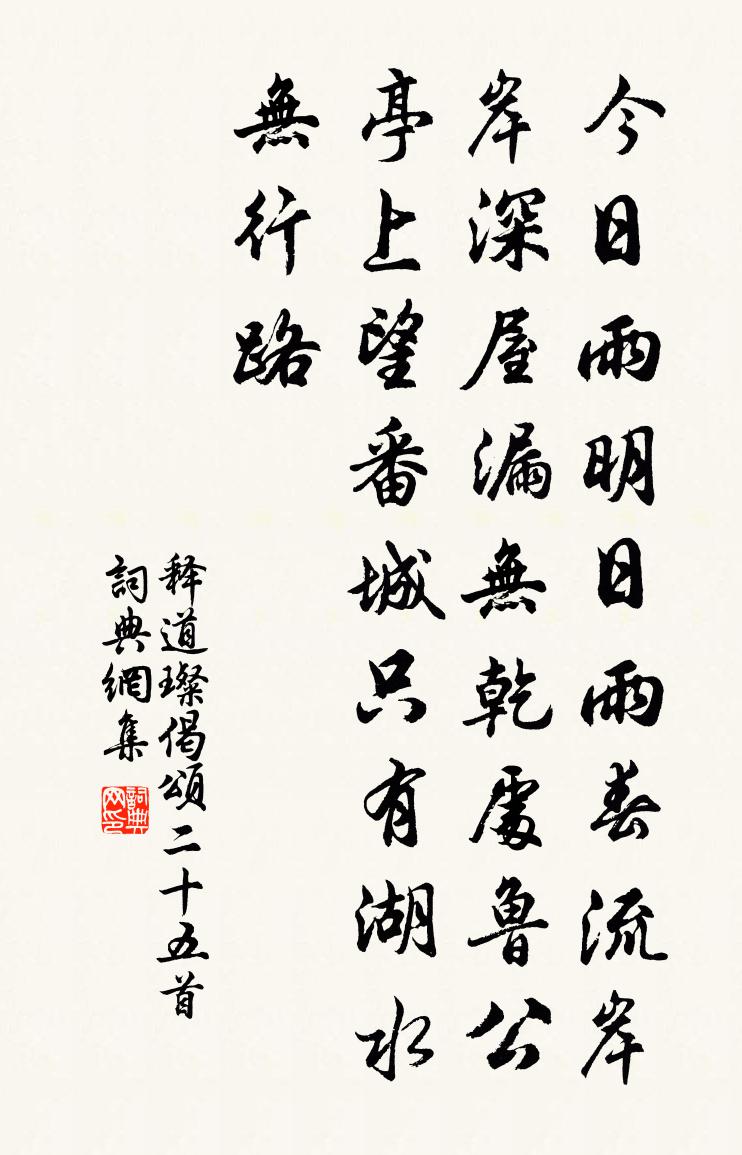 今日雨明日雨春流岸
岸深屋漏無乾處魯公
亭上望番城只有湖水
無行路
释道璨偈頌二十五首
詞典網集
詞典网印